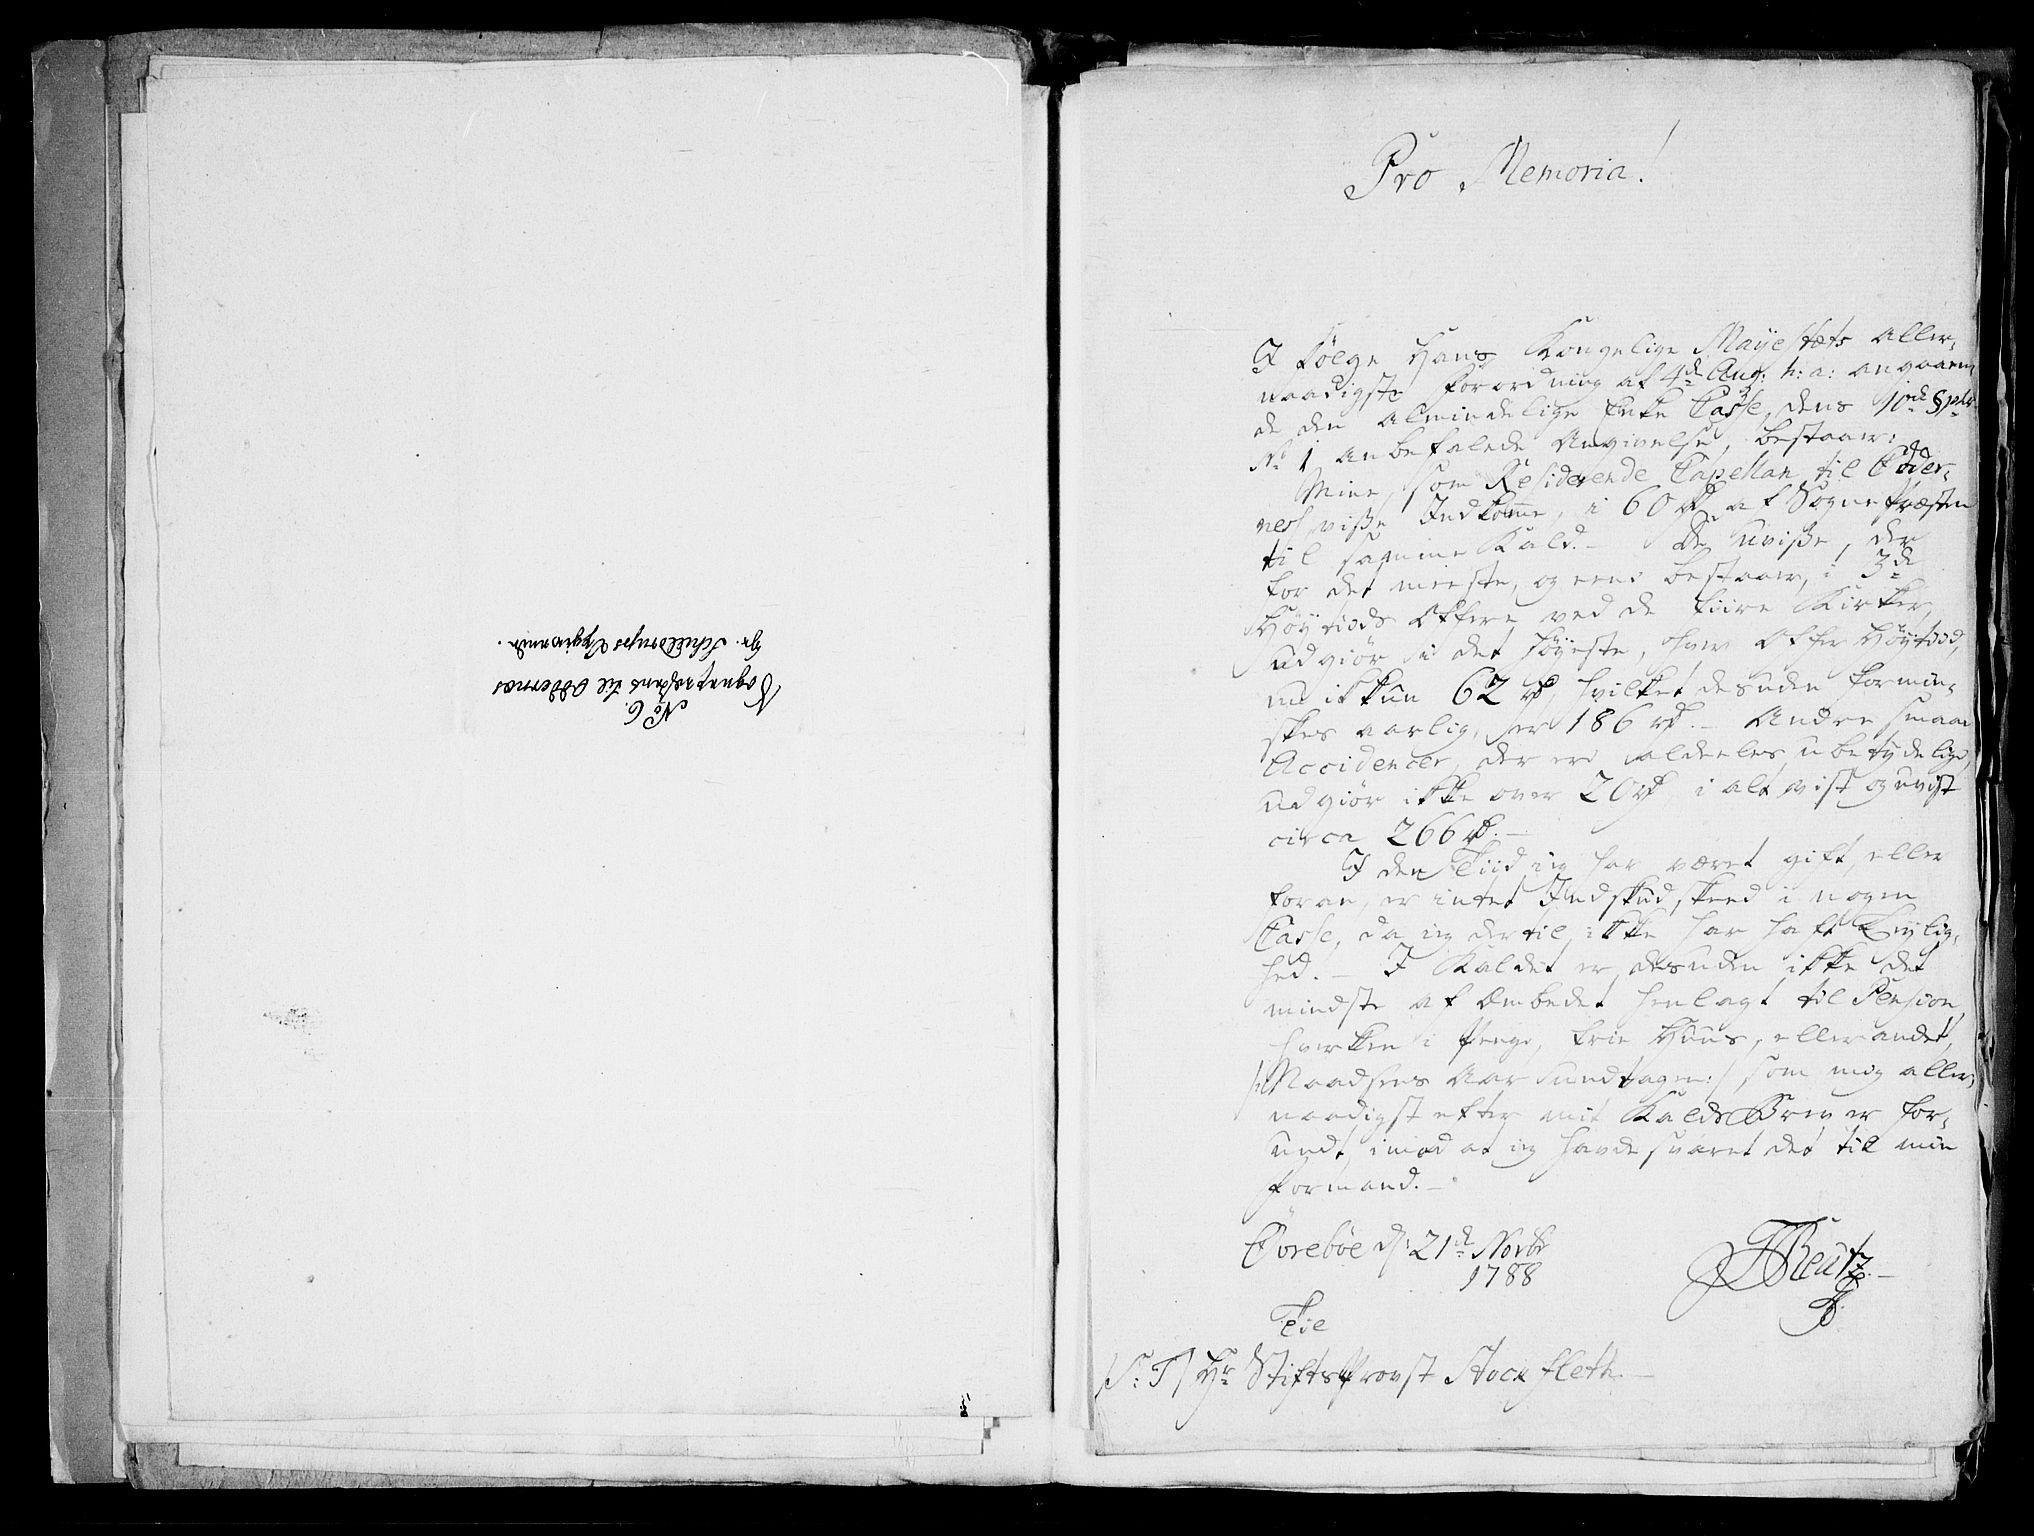 No 6.
Sognepræstens til Oddernes
Hr. Schieldrups Opgivende.
Pro Memoria!
I Følge Hans Kongelige Mayestæts aller-
naadigste Forordning af 4de Aug: h: a: angaaen-
de den almindelige Enke Casse, dens
No 1 anbefalede Anviiselse, bestaaer:
Mine, som Residerende Capellan til Odder-
nes visse Indkomme, i 60 rd af Sogne Præsten
til samme Kald. – De uvisse, der
for det meeste, og eene bestaaer, i 3de
Høytiids Offere ved de fiire Kirker,
udgiør i det høyeste, hver Offer Høytiid,
un ikkun 62 rd, hvilket desuden formin-
skes aarlig, er 186 rd. – Andre smaae
Accidencer, der ere aldeeles ubetydelige,
udgiør ikke over 20 rd, i alt vist og uvist
circa 266 rd. –
I den Tiid ieg har været gift, eller
foran, er intet Indskud skeed i nogen
Casse, da ieg dertil ikke har haft Leylig-
hed. – I Kaldet er desuden ikke det
mindste af Embedet henlagt til Pension,
hverken i Penge, frie Huus, eller andet,
/: Naadsens Aar undtagen :/ som mig aller-
naadigst efter mit Kalds Brev er for-
undt, imod at ieg havde svaret det til min
Formand. –
Torebøe d: 21de Novbr
1788
Reutz
Til
/S: T/ Hr Stifts Provst Stockfleth. –